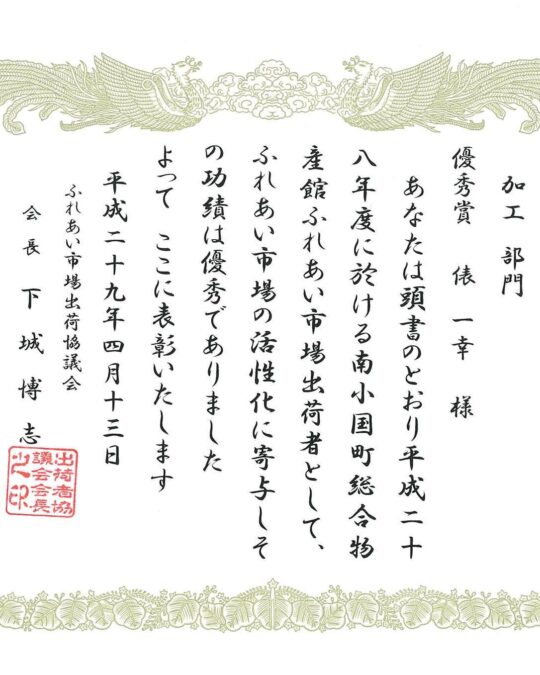 加工 部門
優秀賞 俵 一幸 様
あなたは頭書のとおり平成二十
八年度に於ける南小国町総合物
産館ふれあい市場出荷者として、
ふれあい市場の活性化に寄与しそ
の功績は優秀でありました
よって ここに表彰いたします
平成二十九年四月十三日
ふれあい市場出荷協議会
会長 下城博志
出荷者協
議会会長
之印